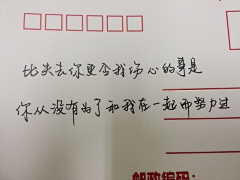 比失去你更令我伤心的事是
你从没有为了和我在一起而努力过
邮政编码: